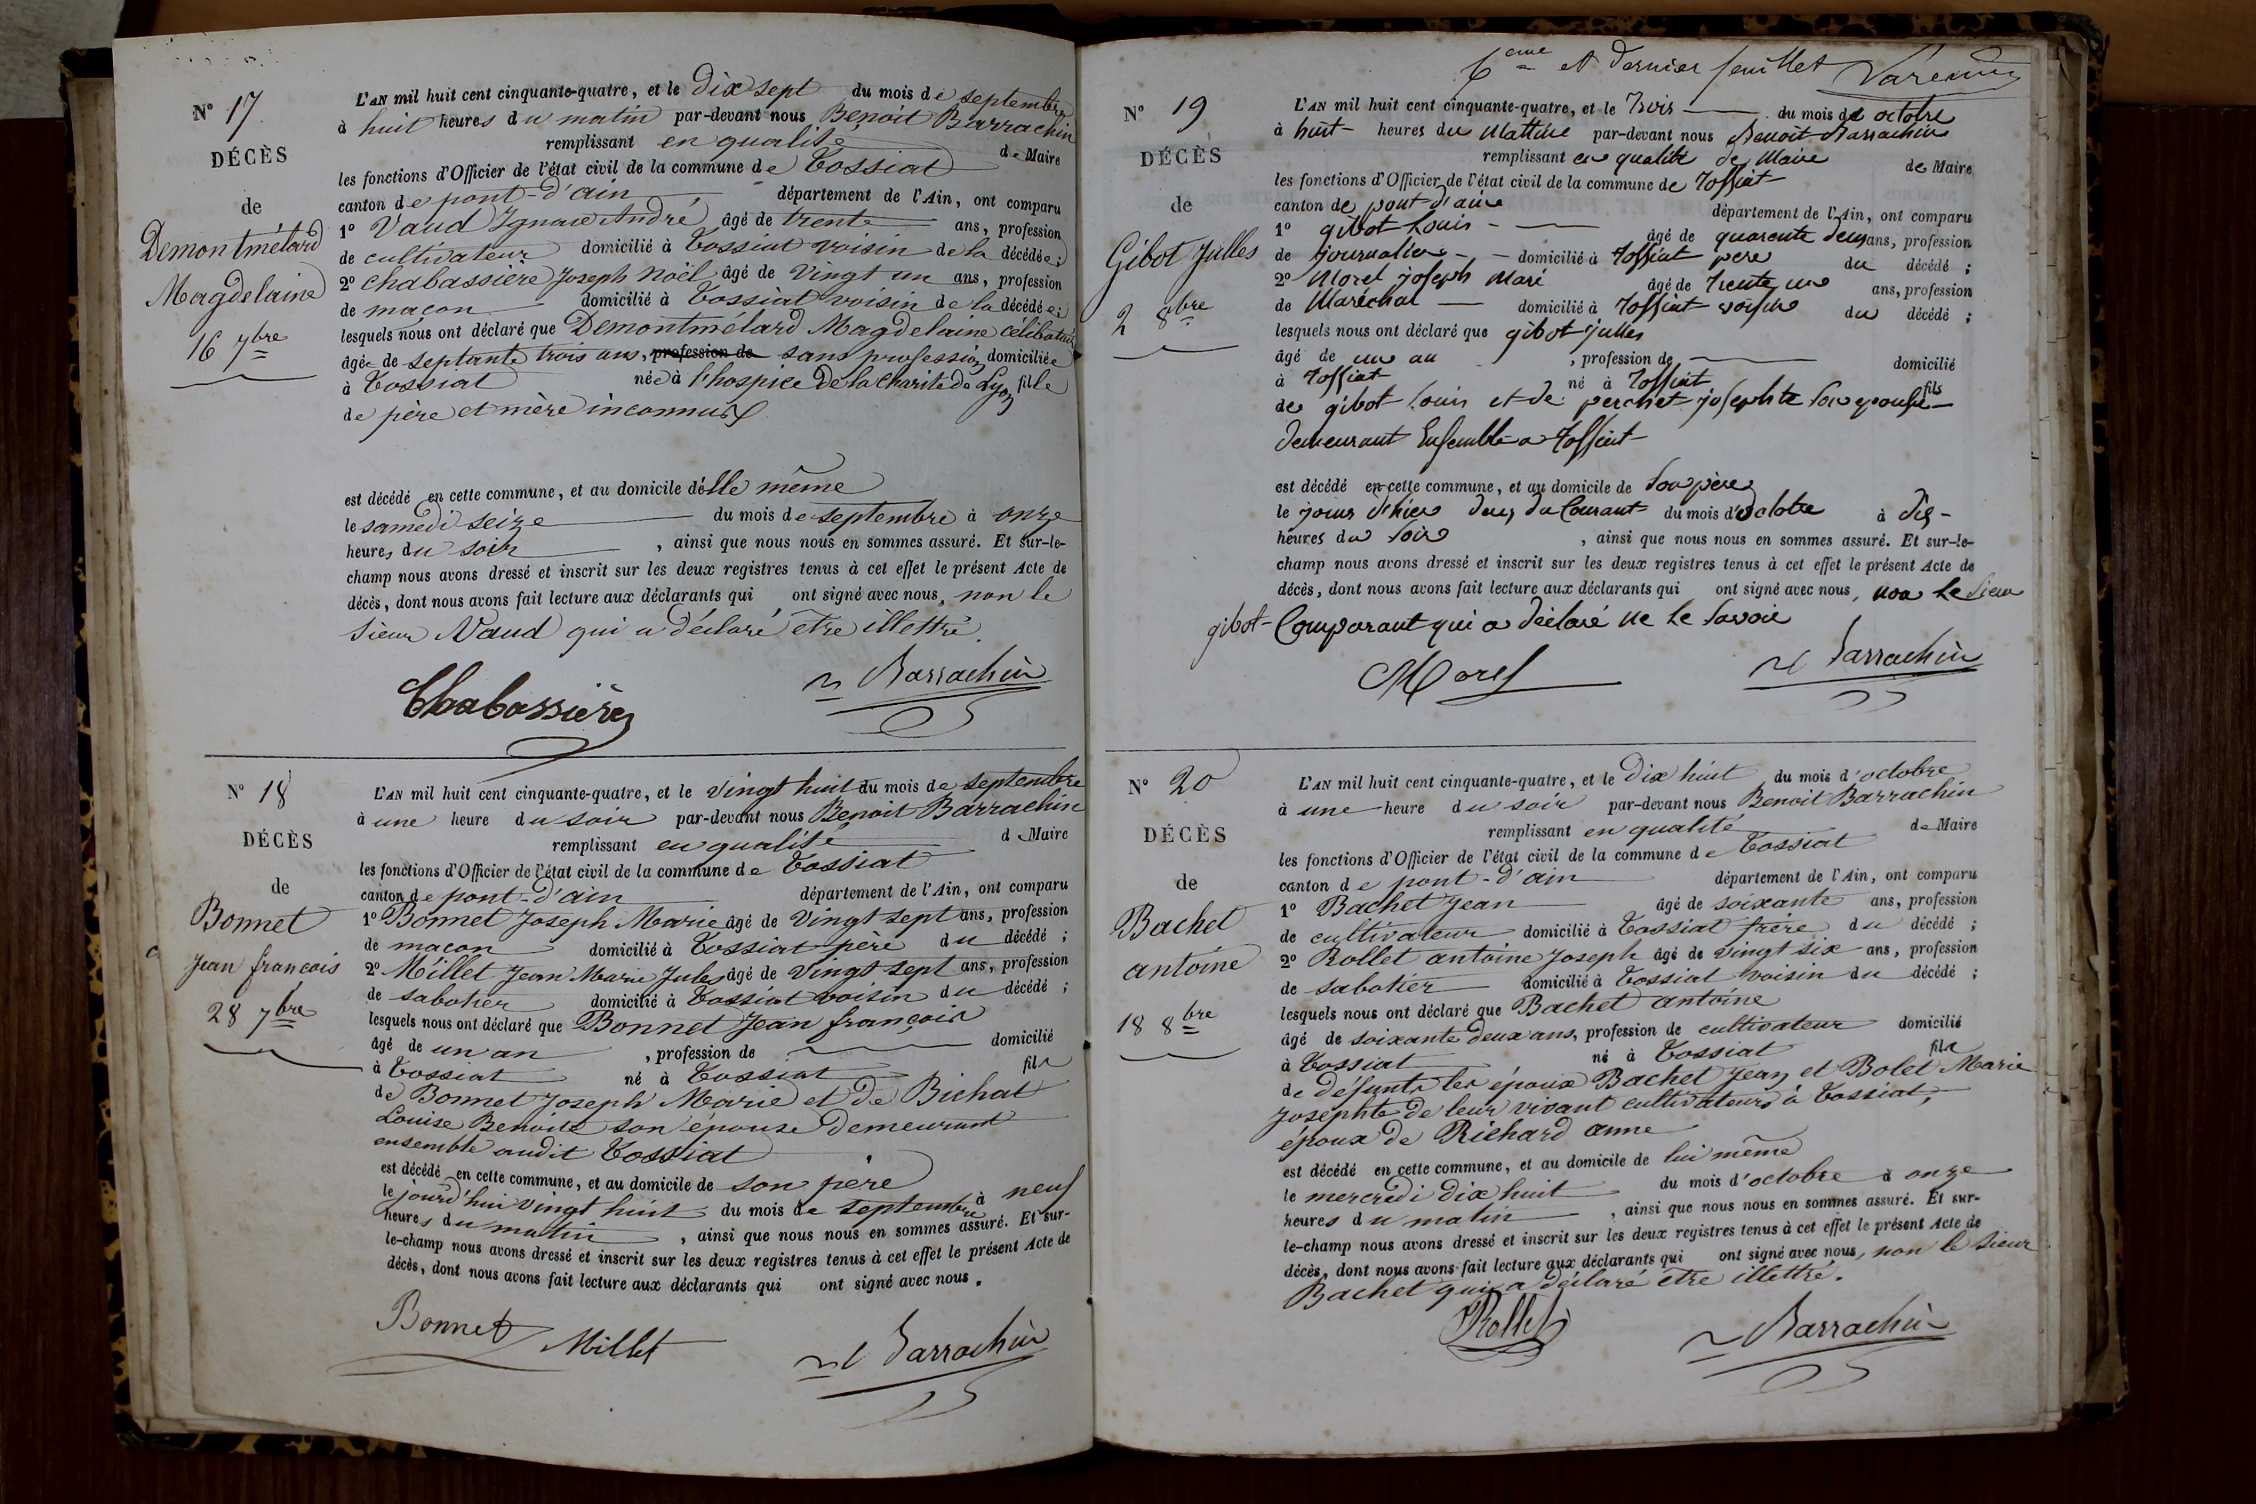 N° 17
DÉCÈS
de
Demontmélard
Magdelaine
16 7bre
L'AN mil huit cent cinquante-quatre, et le Dix sept du mois de septembre
à huit heures du matin par-devant nous Benoit Barrachin
remplissant en qualité de Maire
les fonctions d'Officier de l'état civil de la commune de Tossiat
canton de pont-d'ain département de l'Ain, ont comparu
1° Vaud Ignace André âgé de trente ans, profession
de cultivateur domicilié à Tossiat voisin de la décédée;
2° Chabassière Joseph Noël âgé de vingt un ans, profession
de maçon domicilié à Tossiat voisin de la décédée;
lesquels nous ont déclaré que Demontmélard Magdelaine célibataire
âgée de septante trois ans, profession de sans profession domiciliée
à Tossiat née à l'hospice de la charité de Lyon fille
de père et mère inconnus
est décédé en cette commune, et au domicile d'elle même
le samedi seize du mois de septembre à onze
heures du soir, ainsi que nous nous en sommes assuré. Et sur-le-
champ nous avons dressé et inscrit sur les deux registres tenus à cet effet le présent Acte de
décès, dont nous avons fait lecture aux déclarants qui ont signé avec nous, non le
sieur Vaud qui a déclaré être illettré.
Chabassière Barrachin
N° 18
DÉCÈS
de
Bonnet
Jean françois
28 7bre
L'AN mil huit cent cinquante-quatre, et le vingt huit du mois de septembre
à une heure du soir par-devant nous Benoit Barrachin
remplissant en qualité de Maire
les fonctions d'Officier de l'état civil de la commune de Tossiat
canton de pont-d'ain département de l'Ain, ont comparu
1° Bonnet Joseph Marie âgé de vingt sept ans, profession
de maçon domicilié à Tossiat père du décédé;
2° Millet Jean Marie Jules âgé de vingt sept ans, profession
de sabotier domicilié à Tossiat voisin du décédé;
lesquels nous ont déclaré que Bonnet Jean françois
âgé de un an, profession de domicilié
à Tossiat né à Tossiat fils
de Bonnet Joseph Marie et de Bichat
Louise Benoite son épouse demeurant
ensemble audit Tossiat
est décédé en cette commune, et au domicile de son père
le jourd'hui vingt huit du mois de septembre à neuf
heures du matin, ainsi que nous nous en sommes assuré. Et sur-
le-champ nous avons dressé et inscrit sur les deux registres tenus à cet effet le présent Acte de
décès, dont nous avons fait lecture aux déclarants qui ont signé avec nous.
Bonnet Millet Barrachin
6eme et Dernier feuillet
N° 19
DÉCÈS
de
Gibot Julles
2 8bre
L'AN mil huit cent cinquante-quatre, et le trois du mois de octobre
à huit heures du Mattin par-devant nous Benoit Barrachin
remplissant en qualité de Maire de Maire
les fonctions d'Officier de l'état civil de la commune de Tossiat
canton de pont d'ain département de l'Ain, ont comparu
1° gibot Louis âgé de quarente deux ans, profession
de journalier domicilié à Tossiat pere du décédé;
2° Morel joseph Marie âgé de trente un ans, profession
de Maréchal domicilié à Tossiat voisin du décédé;
lesquels nous ont déclaré que gibot Julles
âgé de un an, profession de domicilié
à Tossiat né à Tossiat fils
de gibot Louis et de perchet josephte son epouse
demeurant Ensemble a Tossiat
est décédé en cette commune, et au domicile de son père
le jour d'hier deux du Courant du mois d'octobre à dix
heures du soir, ainsi que nous nous en sommes assuré. Et sur-le-
champ nous avons dressé et inscrit sur les deux registres tenus à cet effet le présent Acte de
décès, dont nous avons fait lecture aux déclarants qui ont signé avec nous, non Le Sieur
gibot Comparant qui a déclaré ne le savoir
Morel Barrachin
N° 20
DÉCÈS
de
Bachet
antoine
18 8bre
L'AN mil huit cent cinquante-quatre, et le Dix huit du mois d'octobre
à une heure du soir par-devant nous Benoit Barrachin
remplissant en qualité de Maire
les fonctions d'Officier de l'état civil de la commune de Tossiat
canton de pont-d'ain département de l'Ain, ont comparu
1° Bachet Jean âgé de soixante ans, profession
de cultivateur domicilié à Tossiat frère du décédé;
2° Rollet antoine Joseph âgé de vingt six ans, profession
de sabotier domicilié à Tossiat voisin du décédé;
lesquels nous ont déclaré que Bachet antoine
âgé de soixante deux ans, profession de cultivateur domicilié
à Tossiat né à Tossiat fils
de défunts les époux Bachet Jean et Bolet Marie
Josephte de leur vivant cultivateurs à Tossiat,
époux de Richard anne
est décédé en cette commune, et au domicile de lui même
le mercredi dix huit du mois d'octobre à onze
heures du matin, ainsi que nous nous en sommes assuré. Et sur-
le-champ nous avons dressé et inscrit sur les deux registres tenus à cet effet le présent Acte de
décès, dont nous avons fait lecture aux déclarants qui ont signé avec nous, non le sieur
Bachet qui a déclaré etre illettré.
Rollet Barrachin